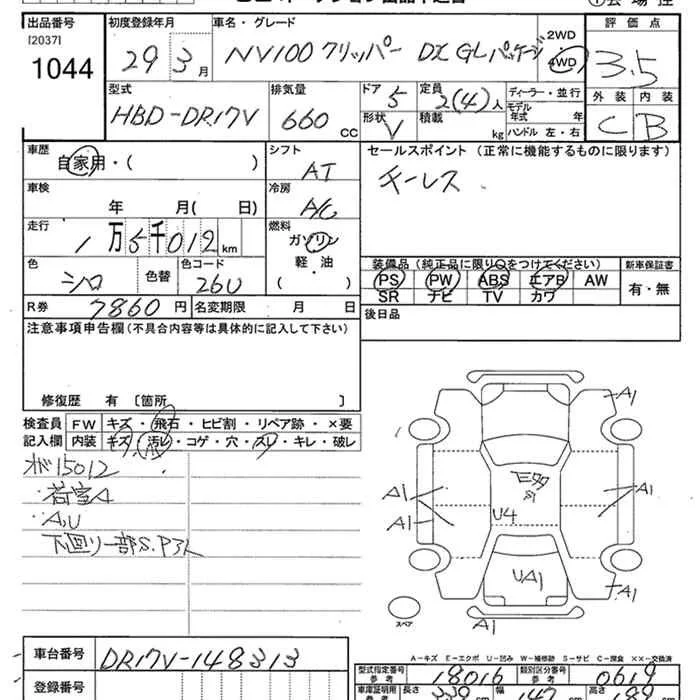 出品番号 初度登録年月 車名・グレード 評価点
[2037]
1044 29 3月 NV100 クリッパー DX GLパッケージ 2WD 4WD 3.5
型式 排気量 ドア 定員 ディーラー・並行 外装 内装
HBD-DR17V 660 CC 5 2(4)人 モデル年式 年 C B
形状 V 積載 kg ハンドル 左・右
車歴 シフト セールスポイント (正常に機能するものに限ります)
自家用・( ) AT キーレス
車検 冷房
年 月( 日) A/C
走行 燃料
1万5千012km ガソリン
軽・油
( )
色 色替 色コード 装備品 (純正品に限り○をつけてください) 新車保証書
シロ 26U PS PW ABS エアB AW 有・無
SR ナビ TV カワ
R券 7860円 名変期限 月 日 後日品
注意事項申告欄(不具合内容等は具体的に記入して下さい)
修復歴 有 [箇所 ]
検査員 FW キズ・飛石・ヒビ割・リペア跡・×要
記入欄 内装 キズ・汚レ・コゲ・穴・スレ・キレ・破レ
15012
A.U
下回り一部S.P
A1
A1
A1
A1
U4
UA1
A1
A1
スペア
A-キズ E-エクボ U-凹み W-補修跡 S-サビ C-腐食 XX-交換済
車台番号 DR17V-148313
型式指定番号 参考 18016 類別区分番号 参考 0619
登録番号 車庫証明用 参考 長さ 339 cm 幅 147 cm 高さ 189 cm